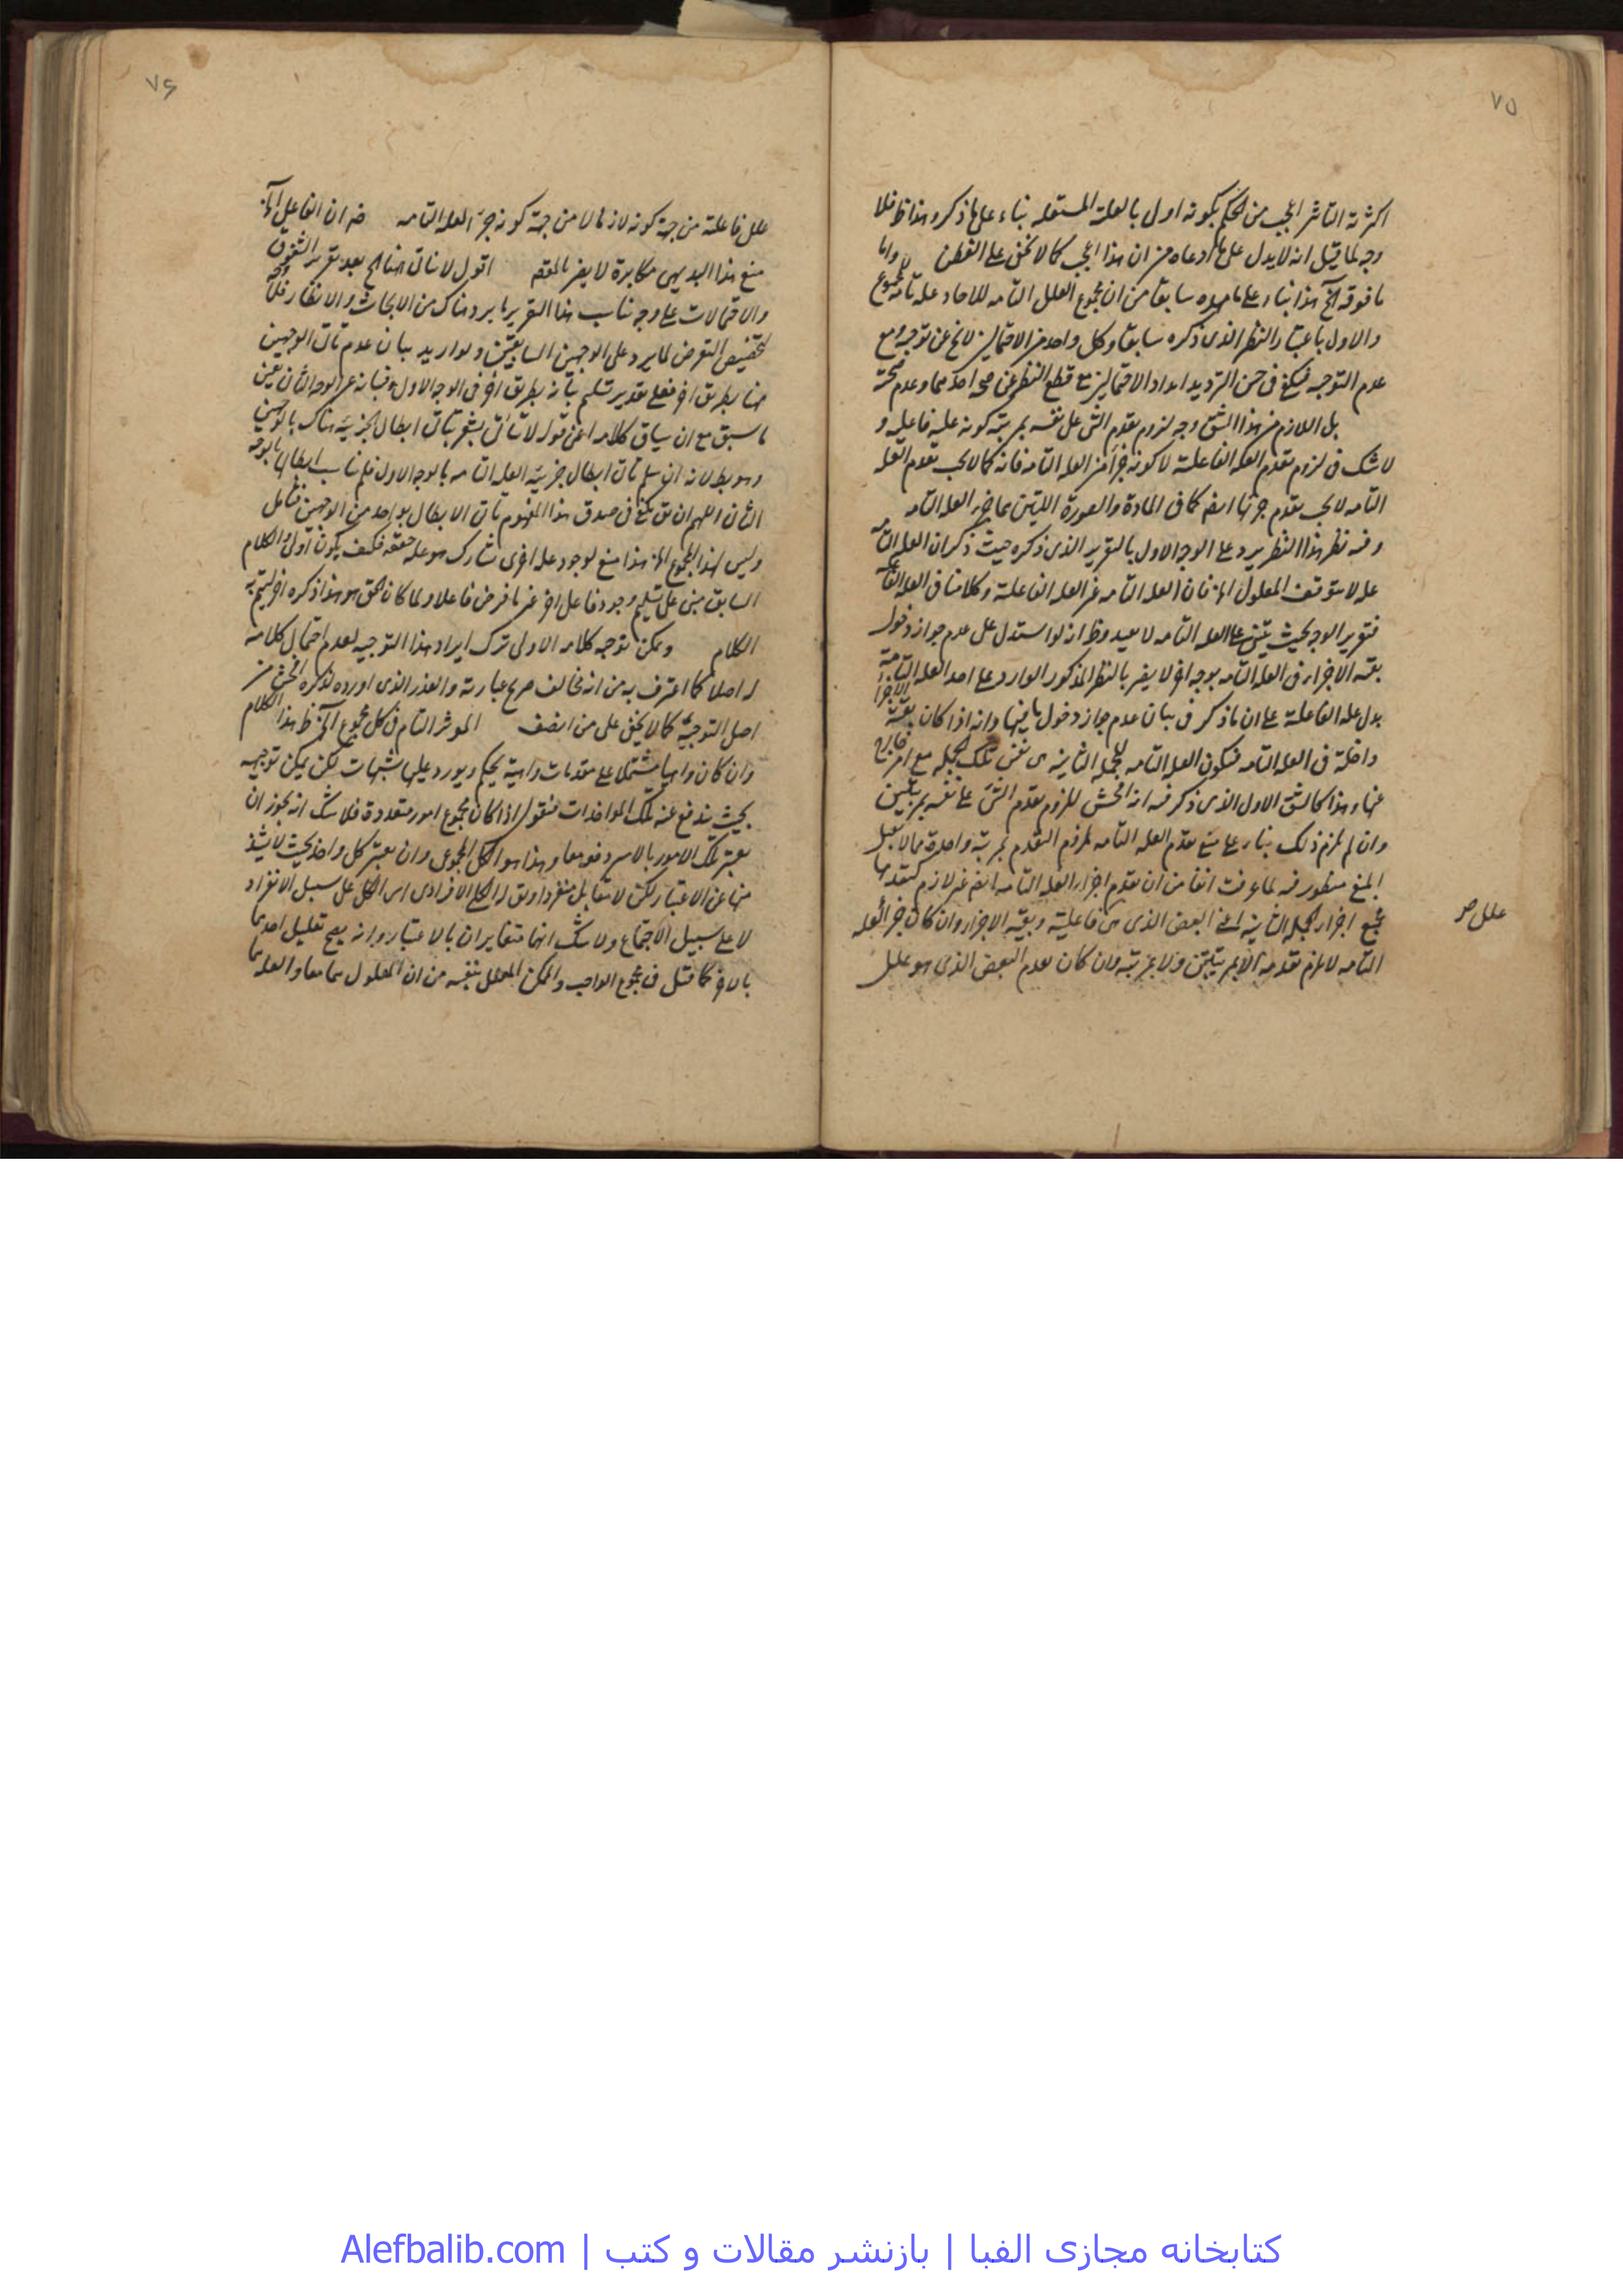 ٧٥
اكثرية التأثير المجيب من الحكم بكونه اولى بالعلة المستقلة بناء على ما ذكر وهذا ظ فلا
وجه لما قيل انه لا يدل على ما ادعاه من ان هذا المجيب كما لا يخفى على الفطن واما
ما فوقه آلخ هذا بناء على ما مهده سابقا من ان مجموع العلل التامه للاحاد علة تامه لمجموع
والاول باعتبار النظر الذى ذكره سابقا وكل واحد من الاحتمالين لا يخ عن توجيه ومع
عدم التوجيه فيكفى فى حسن الترديد ابداء الاحتمالين مع قطع النظر عن صحة احدهما وعدم صحته
بل اللازم من هذا الشق وجه لزوم تقدم الشئ على نفسه بمرتبة كونه علة فاعليه و
لا شك فى لزوم تقدم العله الفاعلية لا كونه جزأ من العله التامه فانه كما لا يجب تقدم العله
التامه لا يجب تقدم جزئها ايضا كما فى المادة والصورة اللتين هما جزء العله التامه
وفيه نظر هذا النظر يرد على الوجه الاول بالتقرير الذى ذكره حيث ذكر ان العله التامه
عله لا يتوقف المعلول الخ فان العله التامه غير العله الفاعلية وكلامنا فى العله الفاعليه
فتقرير الوجه بحيث يبتنى على العله التامه لا يفيد وظ انه لو استدل على عدم جواز دخول
بقية الاجزاء فى العله التامه بوجه اخر لا يضر بالنظر المذكور الوارد على اخذ العله التامة
بدل عله الفاعلية على ان ما ذكر فى بيان عدم جواز دخول باقيها وانه اذا كان بقية الاجزاء
داخلة فى العله التامه فيكون العله التامه للجمله الثانية هى نفس تلك الجمله مع امر خارج
عنها وهذا كالشق الاول الذى ذكر فيه انه افحش للزوم تقدم الشئ على نفسه بمرتبتين
وان لم يلزم ذلك بناء على منع تقدم العله التامه لزم التقدم بمرتبة واحدة مما لا يقبل
المنع منظور فيه لما عرفت انفا من ان تقدم اجزاء العله التامه ايضا غير لازم كتقدمها
جميع اجزاء الجمله الثانية اعنى البعض الذى هى فاعلية وبقية الاجزاء وان كان جزأ لعله
التامه لا يلزم تقدمه الا بمرتبتين ولا بمرتبة وان كان لعدم البعض الذى هو علل
علل صر
٧۶
علل فاعلية من جهة كونه لازما لا من جهة كونه جزء العله التامه ضر ان الفاعل آلخ
منع هذا البديهى مكابرة لا يضر بالمقصم اقول لا يتأتى هنا الخ بعد تقرير الشقوق
والاحتمالات على وجه يناسب هذا التقرير ما يرد هناك من الابحاث والانظار فلا وجه
لتخصيص التعرض لما يرد على الوجهين السابقين ولو اريد بيان عدم تأتى الوجهين
هنا بطريق اخر فعلى تقدير تسليم تأتيه بطريق اخر فى الوجه الاول وبيانه عن الوجه الثانى عين
ما سبق مع ان سياق كلامه اعنى قوله لا يتأتى يشعر بتأتى ابطال الجزئية هناك بالوجهين
وهو بط لانه ان سلم تأتى ابطال جزئية العله التامه بالوجه الاول فلم يتأت ابطالها بالوجه
الثانى اللهم ان يق يكفى فى صدق هذا المفهوم تأتى الابطال بواحد من الوجهين فتأمل
وليس لهذا المجموع الخ هذا منع لوجود عله اخرى تشارك هو عله حقيقه فكيف يكون اولى والكلام
السابق مبنى على تسليم وجود فاعل اخر غير ما فرض فاعلا ولما كان الحق هو هذا ذكره اخر ليتم به
الكلام ويمكن توجيه كلامه الاولى ترك ايراد هذا التوجيه لعدم احتمال كلامه
له اصلا كما اعترف به من انه يخالف صريح عبارته والعذر الذى اورده لذكره افحش من
اصل التوجيه كما لا يخفى على من انصف الموثر التام فى كل مجموع آلخ ظ هذا الكلام
وان كان واهيا مشتملا على مقدمات واهية يحكم ويورد عليها شبهات لكن يمكن توجيهه
بحيث يندفع عنه تلك المواخذات فنقول اذا كان مجموع امور متعددة فلا شك انه يجوز ان
يعتبر تلك الامور بالاسر دفعة معا وهذا هو الكل المجموعى وان يعتبر كل واحد بحيث لا يشذ
منها عن الاعتبار لكن لا متقابل منفردا ويق له الكل الافرادى اى الكل على سبيل الانفراد
لا على سبيل الاجتماع ولا شك انهما متغايران بالاعتبار وانه يصح تعليل احدهما
بالاخر كما قيل فى مجموع الواجب والممكن المعلل بنفسه من ان المعلول هما معا والعله هما
کتابخانه مجازی الفبا | بازنشر مقالات و کتب | Alefbalib.com